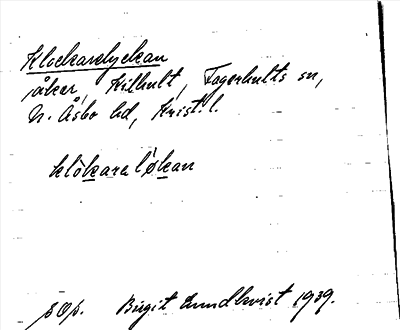 Klockarelyckan
åker, Kilhult, Fagerhults sn,
N. Åsbo hd, Krist. l.
klökara løkan
sOp. Birgit Lundkvist 1939.